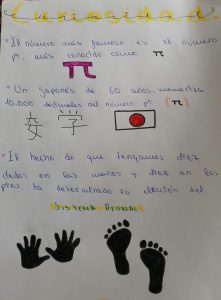 Curiosidad
* El número más famoso es el número
pi, más conocido como π
π
* Un japonés de 60 años, memoriza
10.000 decimales del número pi (π)
* El hecho de que tengamos diez
dedos en las manos y diez en los
pies ha determinado la elección del
SISTEMA DECIMAL